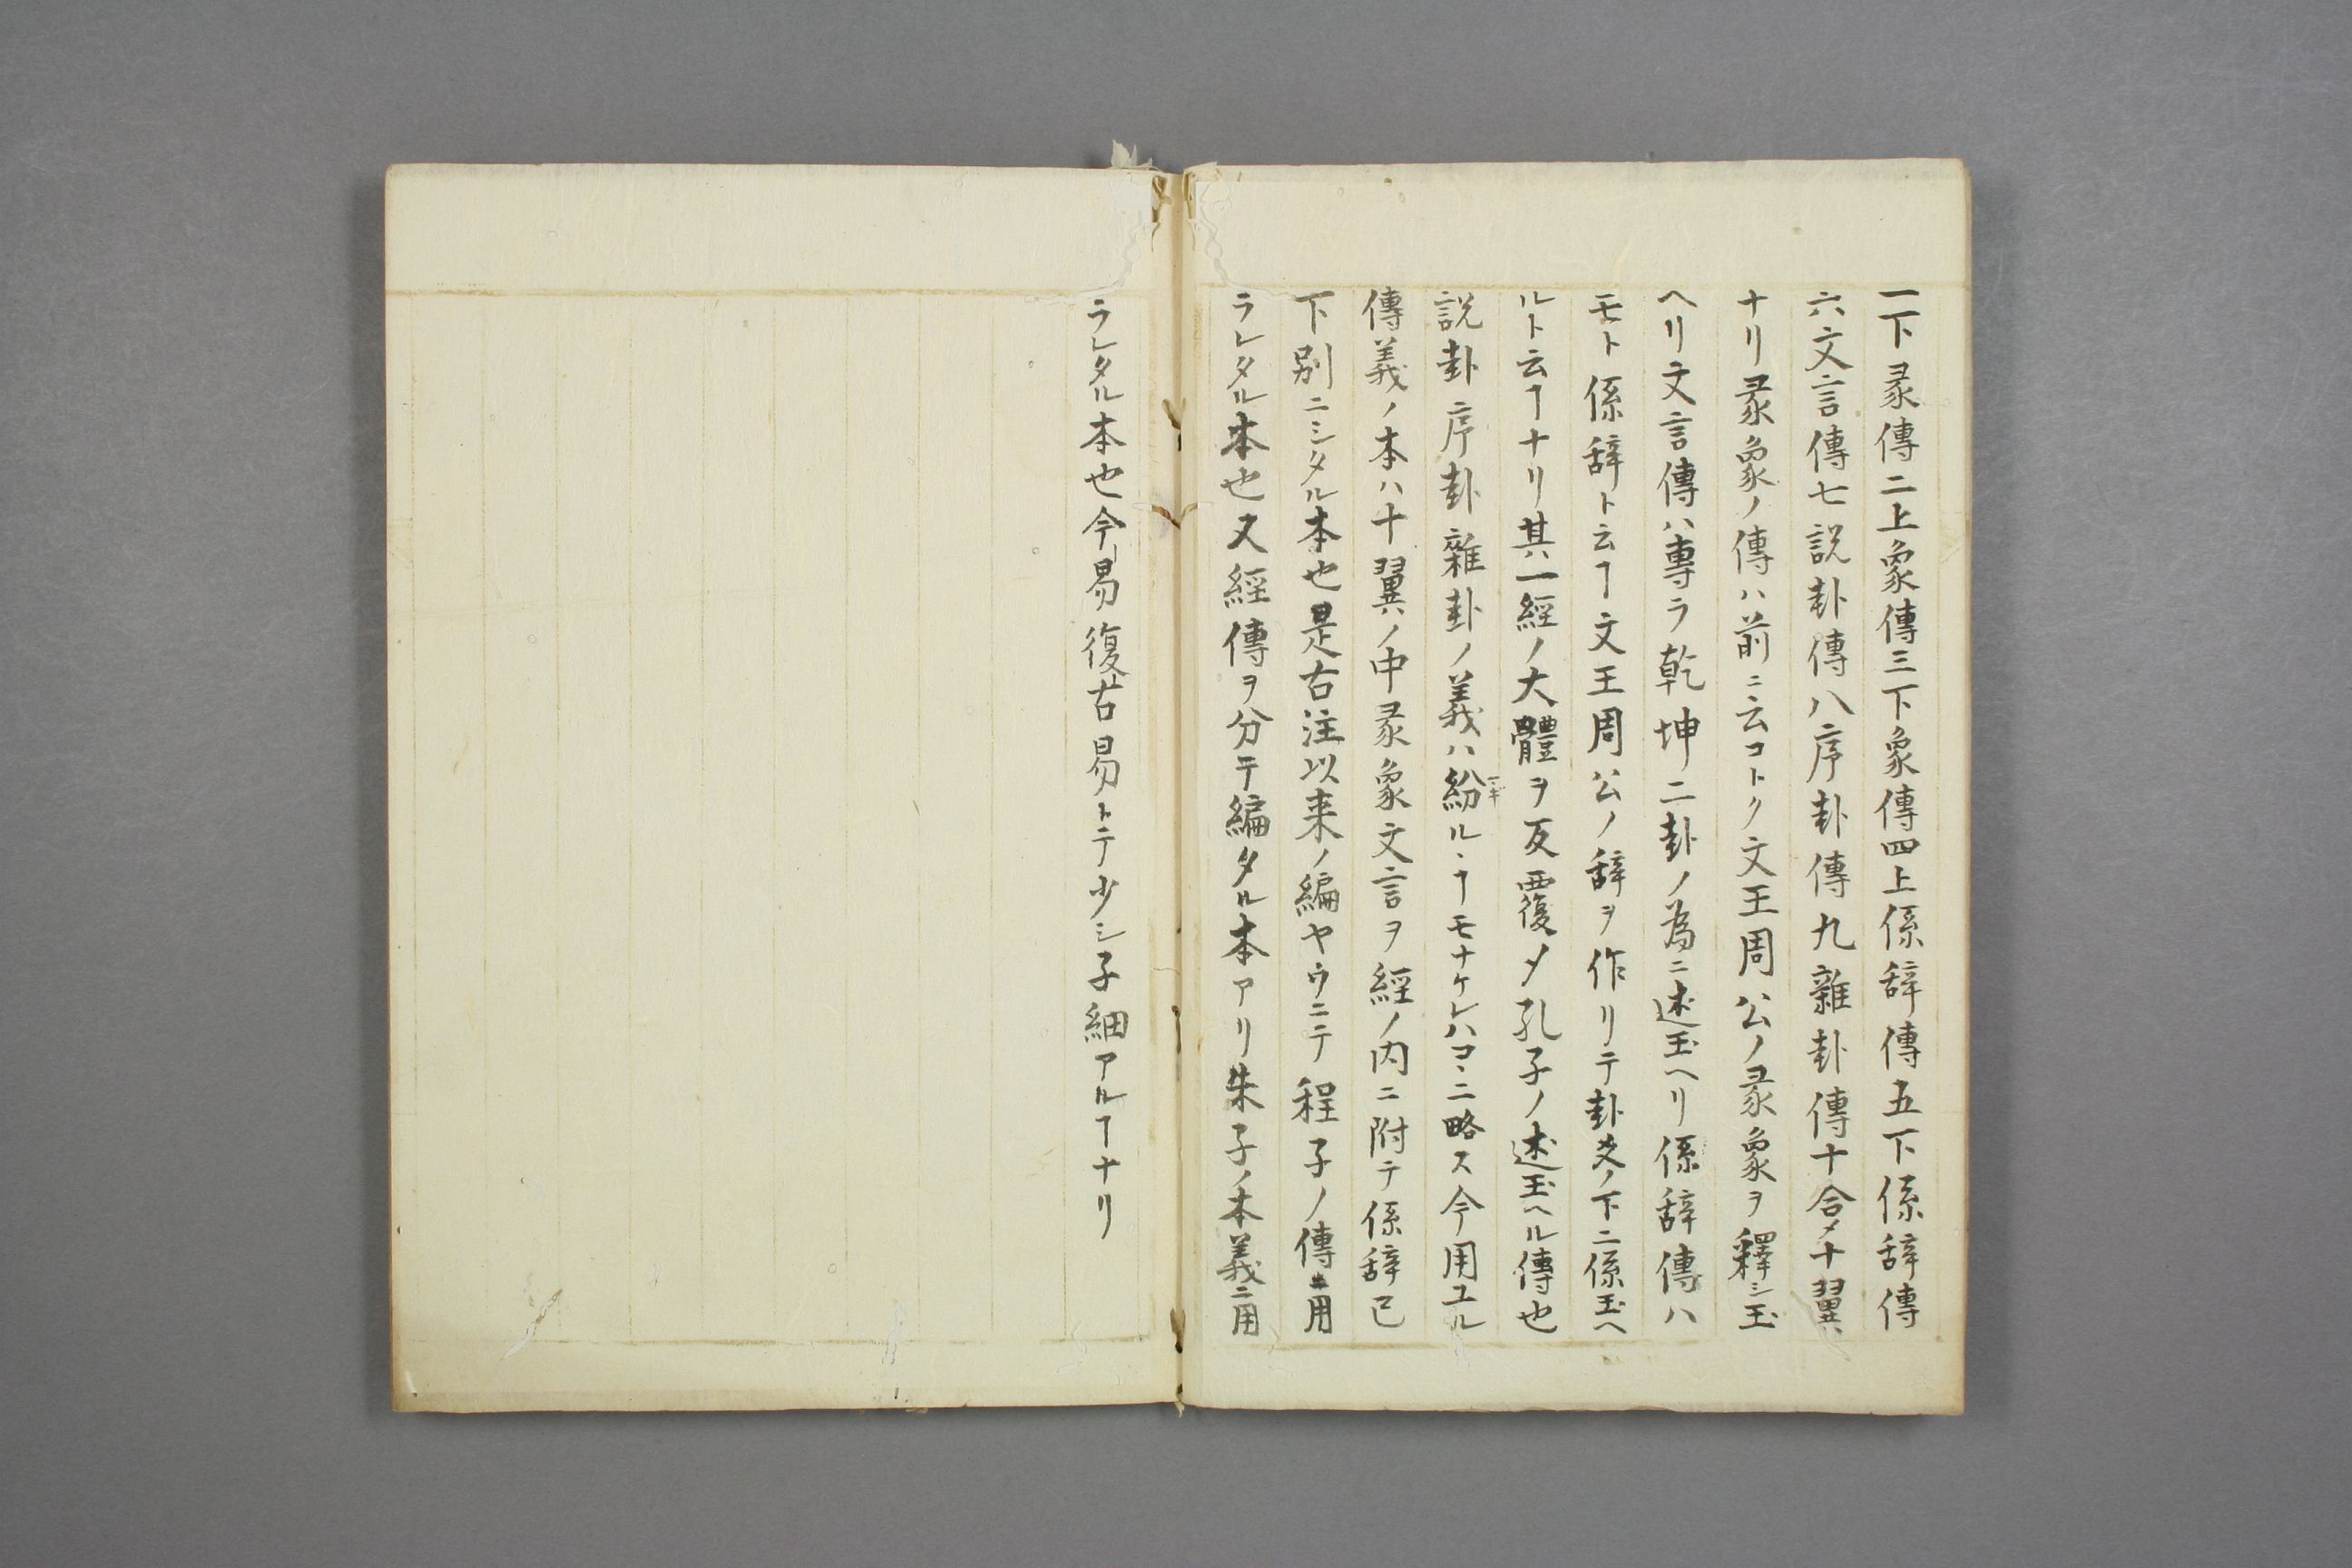 一下彖傳二上象傳三下象傳四上係辞傳五下係辞傳
六文言傳七説卦傳八序卦傳九雜卦傳十合メ十翼
ナリ彖象ノ傳ハ前ニ云コトク文王周公ノ彖象ヲ釋シ玉
ヘリ文言傳ハ專ラ乾坤二卦ノ為ニ述玉ヘリ係辞傳ハ
モト係辞ト云ヿ文王周公ノ辞ヲ作リテ卦爻ノ下ニ係玉ヘ
ルト云ヿナリ其一經ノ大體ヲ反覆〆孔子ノ述玉ヘル傳也
説卦序卦雜卦ノ義ハ紛ルヽヿモナケレハコヽニ略ス今用ユル
傳義ノ本ハ十翼ノ中彖象文言ヲ經ノ内ニ附テ係辞已
下別ニシタル本也是古注以来ノ編ヤウニテ程子ノ傳ニ用
ラレタル本也又經傳ヲ分テ編タル本アリ朱子ノ本義ニ用
ラレタル本也今易復古易トテ少シ子細アルヿナリ